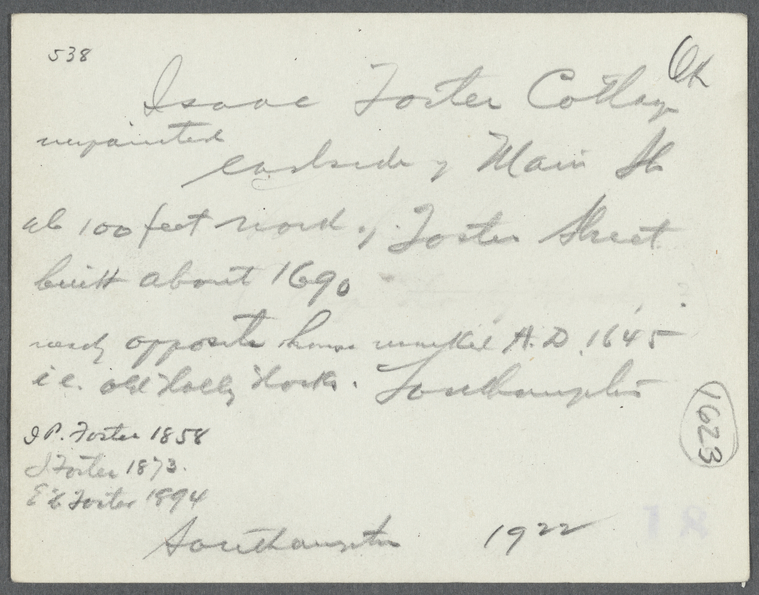 538
Ok
Isaac Foster Cottage
unpainted
eastside of Main St
ab 100 feet north of Foster Street
built about 1690
nearly opposite house marked A.D. 1645
i.e. old Holly Hocks. Southampton
1623
J P. Foster 1858
J Foster 1873.
Foster 1894
Southampton 1922
81